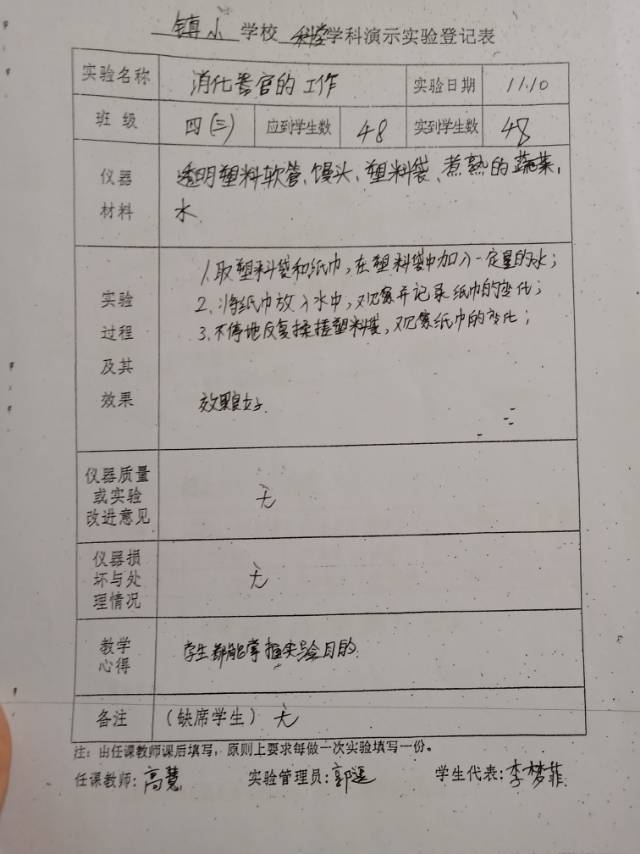 镇小 学校 科学 学科演示实验登记表
实验名称 消化器官的工作 实验日期 11.10
班级 四(三) 应到学生数 48 实到学生数 48
仪器 透明塑料软管、馒头、塑料袋、煮熟的蔬菜,
材料 水
1.取塑料袋和纸巾,在塑料袋中加入一定量的水;
实验 2.将纸巾放入水中,观察并记录纸巾的变化;
过程 3.不停地反复揉搓塑料袋,观察纸巾的变化;
及其
效果 效果良好.
仪器质量
或实验 无
改进意见
仪器损
坏与处 无
理情况
教学 学生都能掌握实验目的.
心得
备注 (缺席学生)无
注:由任课教师课后填写,原则上要求每做一次实验填写一份。
任课教师:高慧 实验管理员:郭遥 学生代表:李梦菲